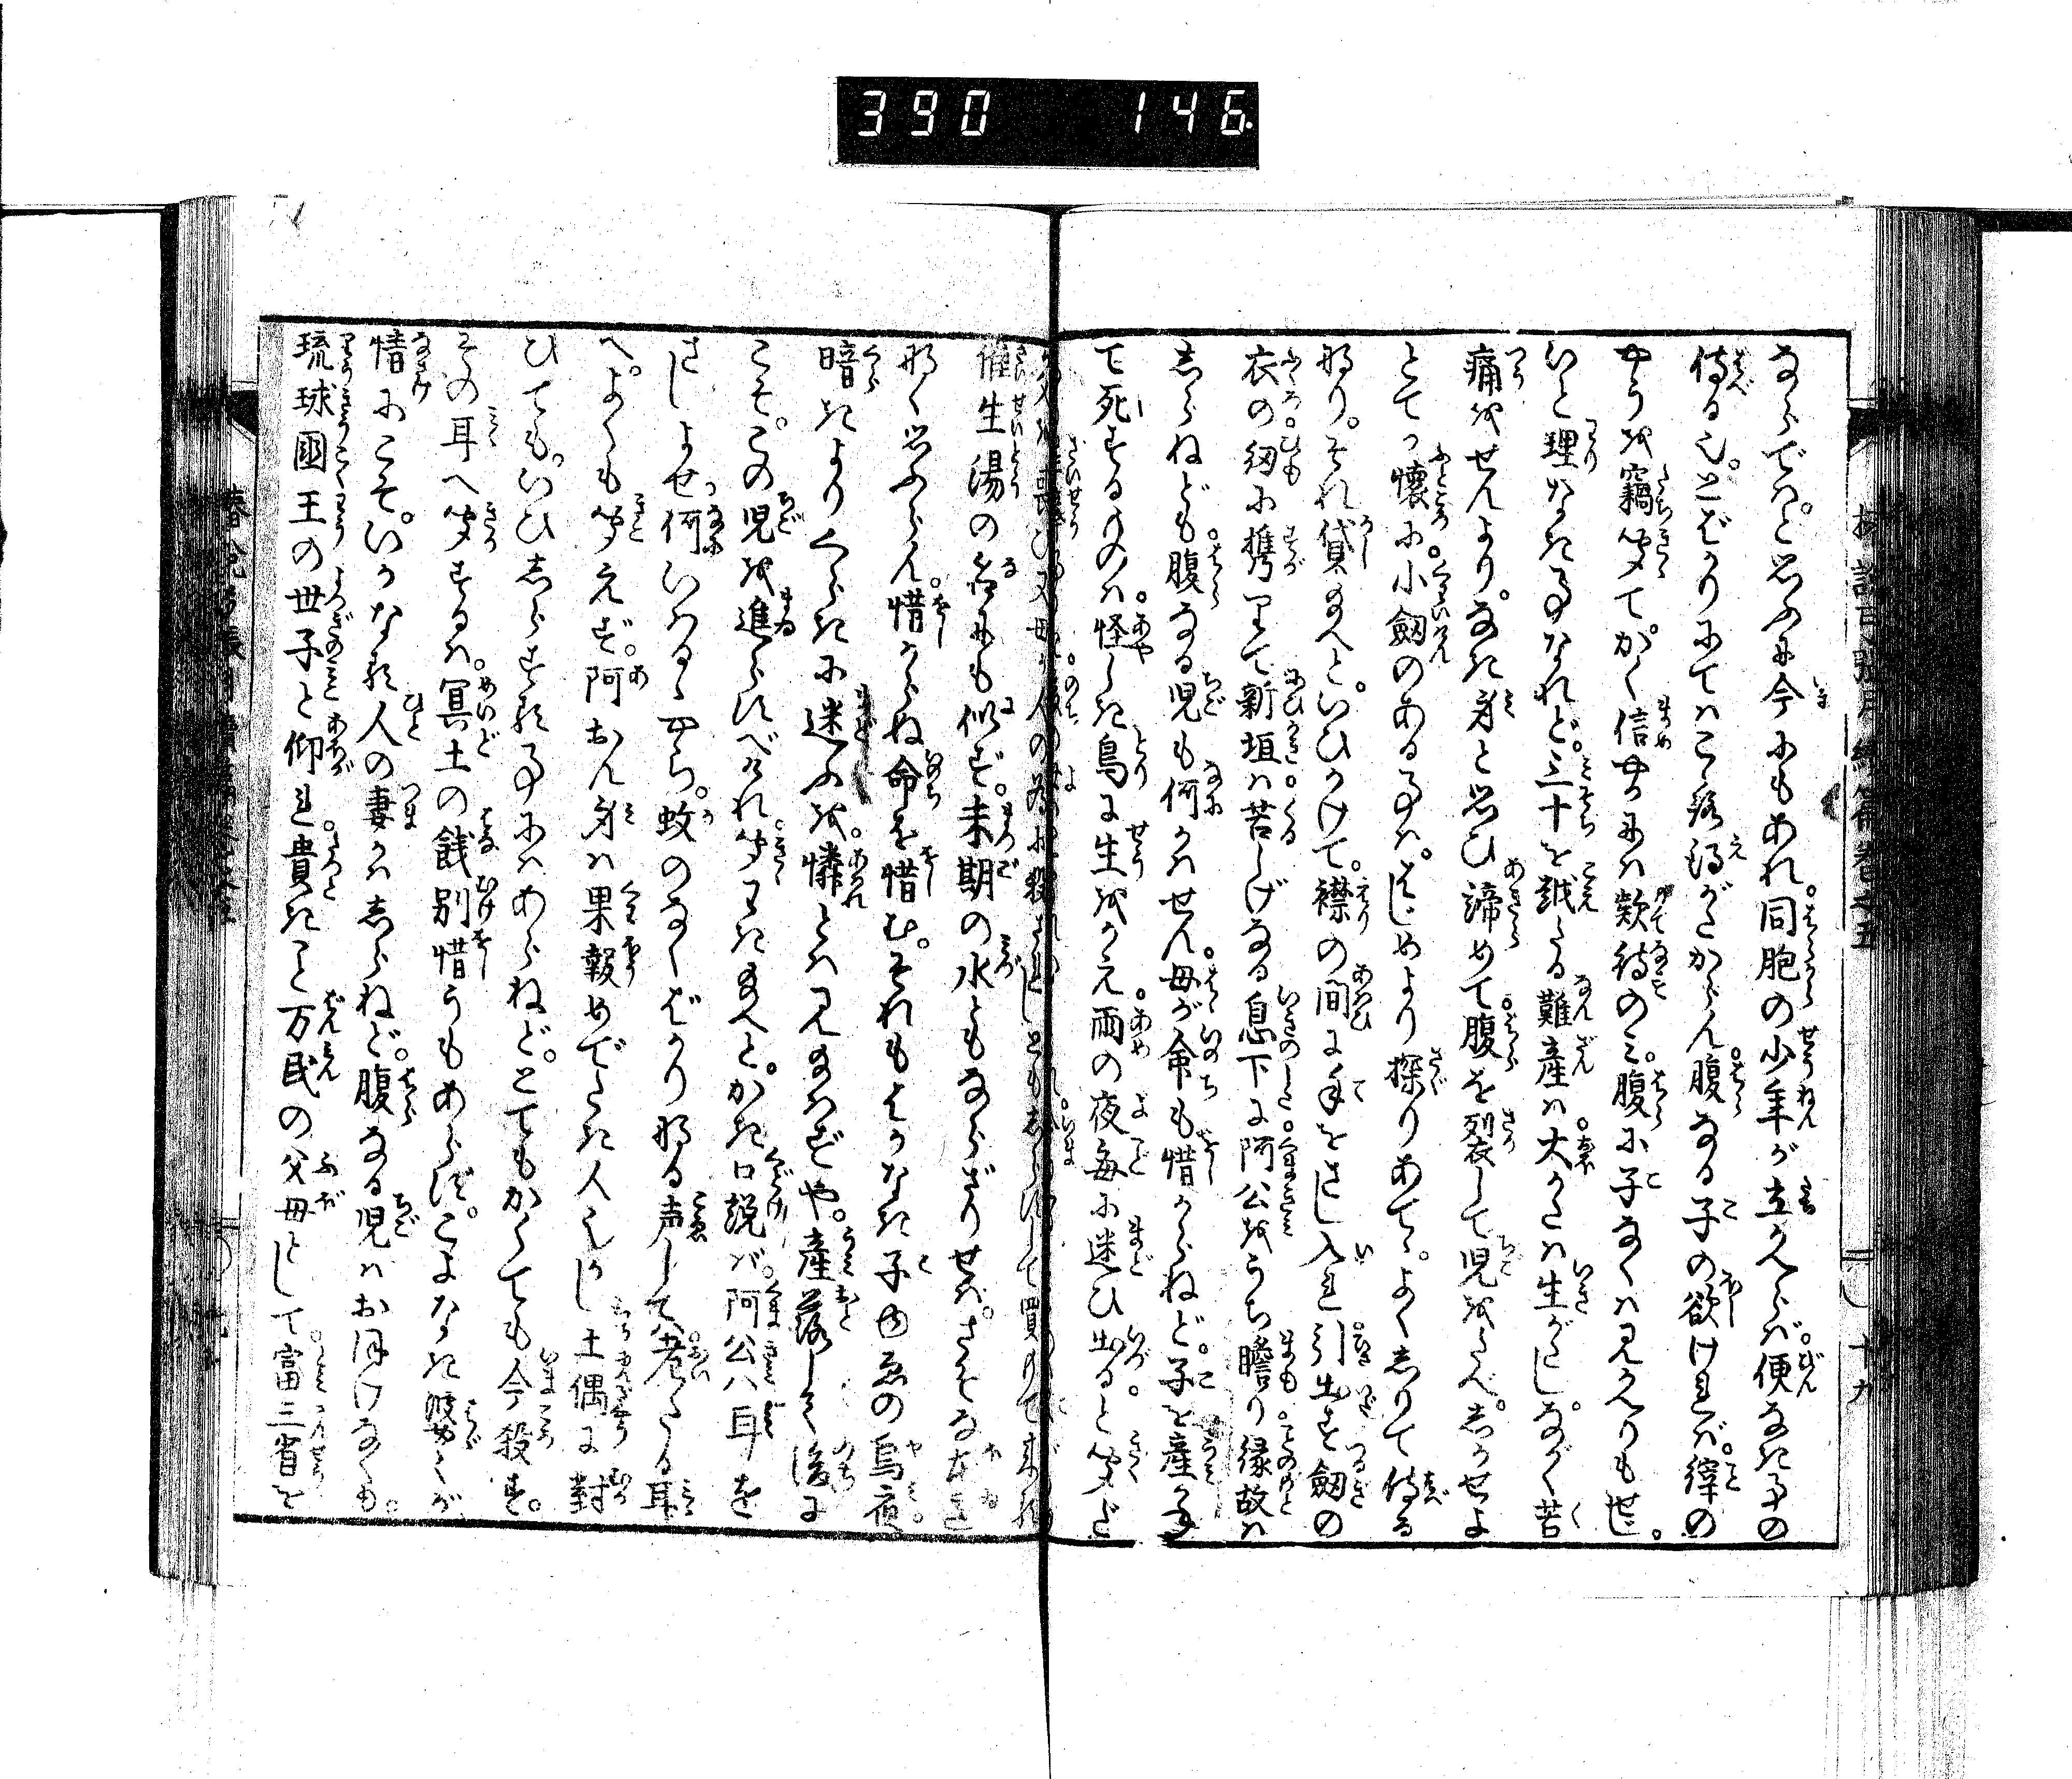 390 146
ならでは。と思ふに今にもあれ。同胞の少年が立かへらば。便なき事の
侍るに。とばかりにてはこゝろ得がたからん。腹なる子の欲ければ。縡の
やうを竊聞て。かく信やかに欵待のみ。腹に子なくは見かへりもせじ。
いと理なき事なれど。三十を越たる難産は。大かたは生がたし。ながく苦
痛をせんより。なき身と思ひ諦めて。腹を裂して児をたべ。しかせよ
とてか懐に。小劔のある事は。はじめより探りあて。よくしりて侍る
なり。それ貸給へと。いひかけて。襟の間に手をさし入れ。引出す劔の
衣の紐に携りて。新垣は。苦しげなる息下に。阿公をうち瞻り。縁故は
しらねども。腹なる児も何かはせん。母が命も惜からねど。子を産かね
て死するものは。怪しき鳥に生をかえ。雨の夜毎に迷ひ出ると。聞ど
催生湯の名にも似ず。末期の水ともならざりせば。さぞな本意
なく思ふらん。惜からぬ命を惜む。それもはかなき子ゆゑの烏夜。
暗きよりくらきに迷ふを。憐とは見給はずや。産落して後に
こそ。この児を進らすべけれ。聞わき給へと。かき口説ば。阿公は耳を
さしよせ。何いはるゝやら。蚊のなくばかりなる声して。老たる耳
へ。よくも聞えず。阿おん身は果報めでたき人かし。土偶に対
ひても。いひしらする事にはあらねど。とてもかくても今殺す。
その耳へ聞するは。冥土の餞別惜うもあらず。こよなき婆々が
情にこそ。いかなる人の妻かはしらねど。腹なる児はおほけなくも。
琉球國王の世子と仰れ。貴きこと万民の父母として。富三省を